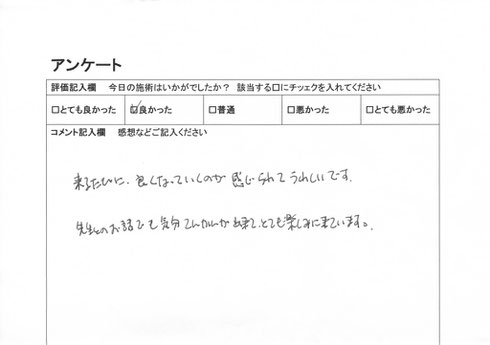 アンケート
評価記入欄　今日の施術はいかがでしたか？　該当する口にチェックを入れてください
□とても良かった　☑良かった　□普通　□悪かった　□とても悪かった
コメント記入欄　感想などご記入ください
来るたびに、良くなっていくのが感じられてうれしいです。
先生とのお話でも気分てんかんが出来て、とても楽しみに来ています。